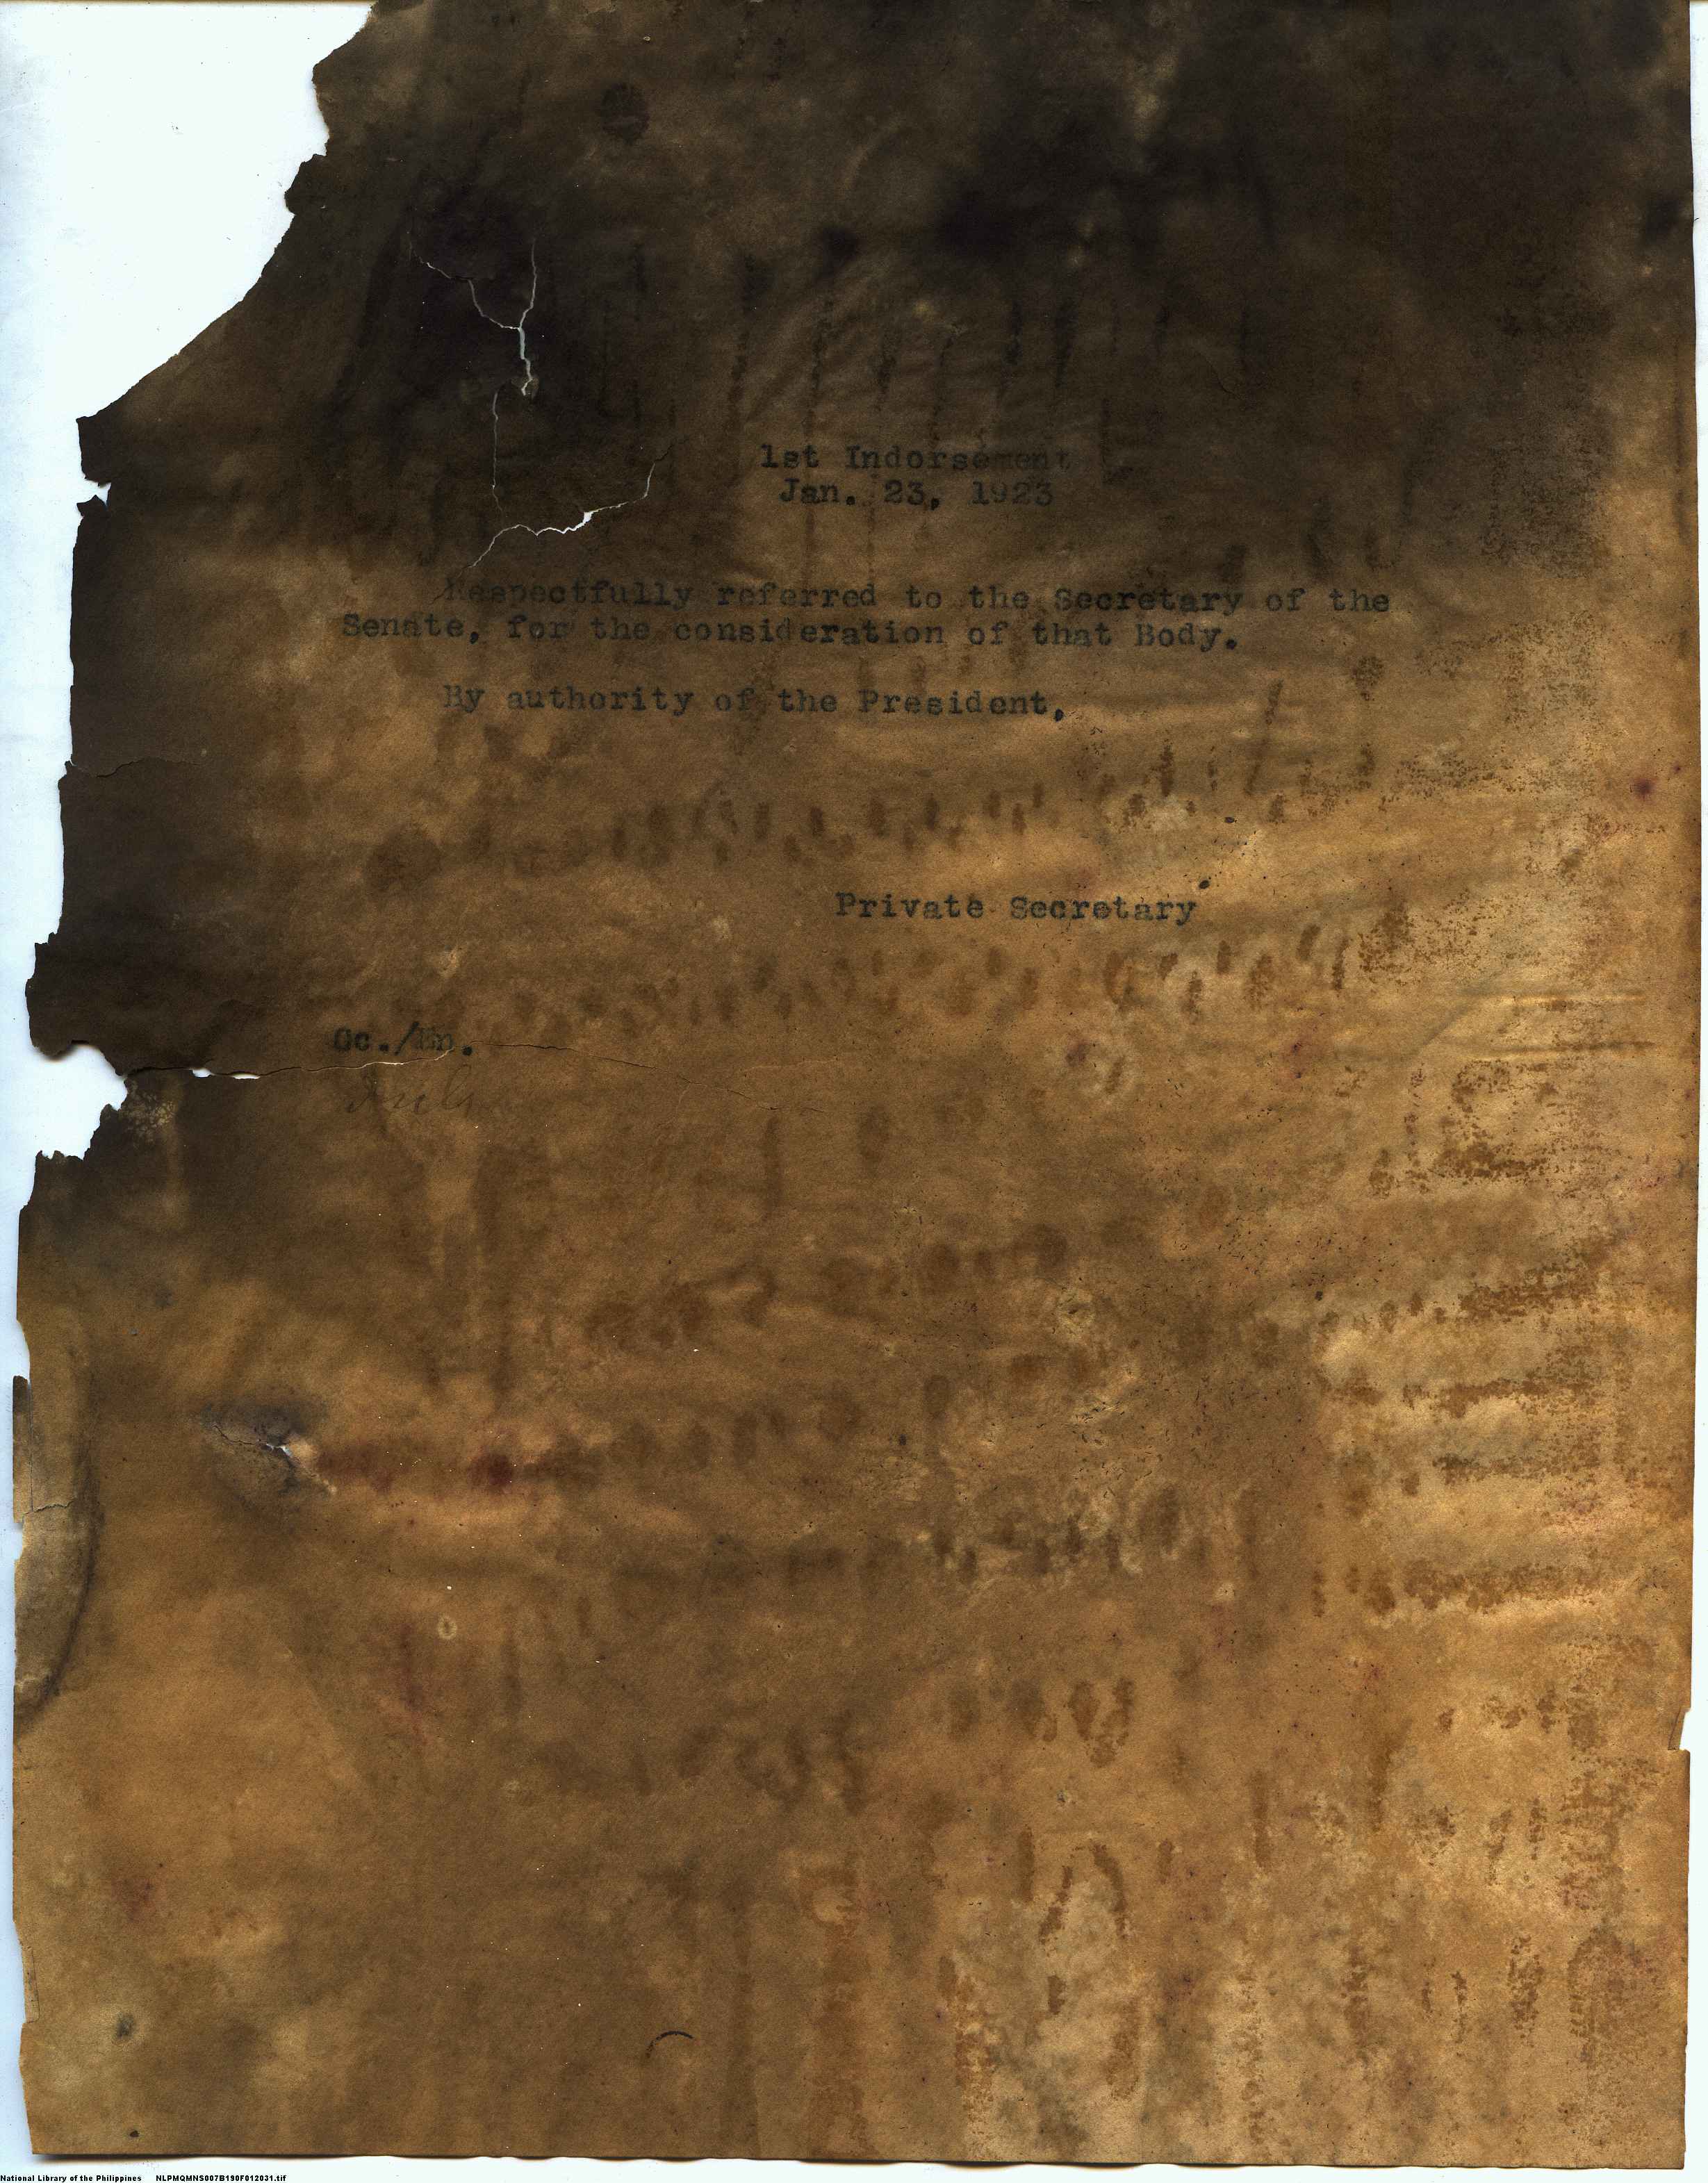 1st Indorsement
Jan. 23, 1923
Respectfully referred to the Secretary of the
Senate, for the consideration of that Body.
By authority of the President,
Private Secretary
National Library of the Philippines NLPMQMNS007B190F012031.tif